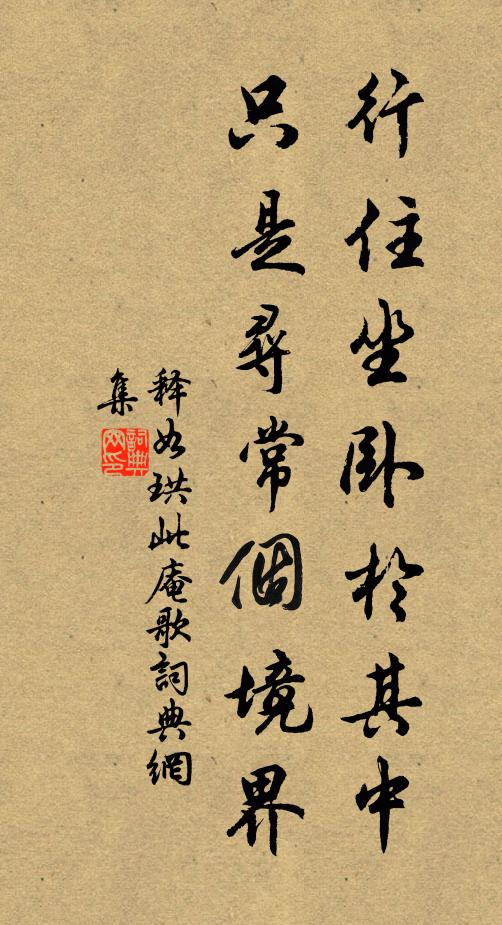 行住坐卧於其中
只是尋常個境界
释如珙此庵歌詞典網
集
詞典網印